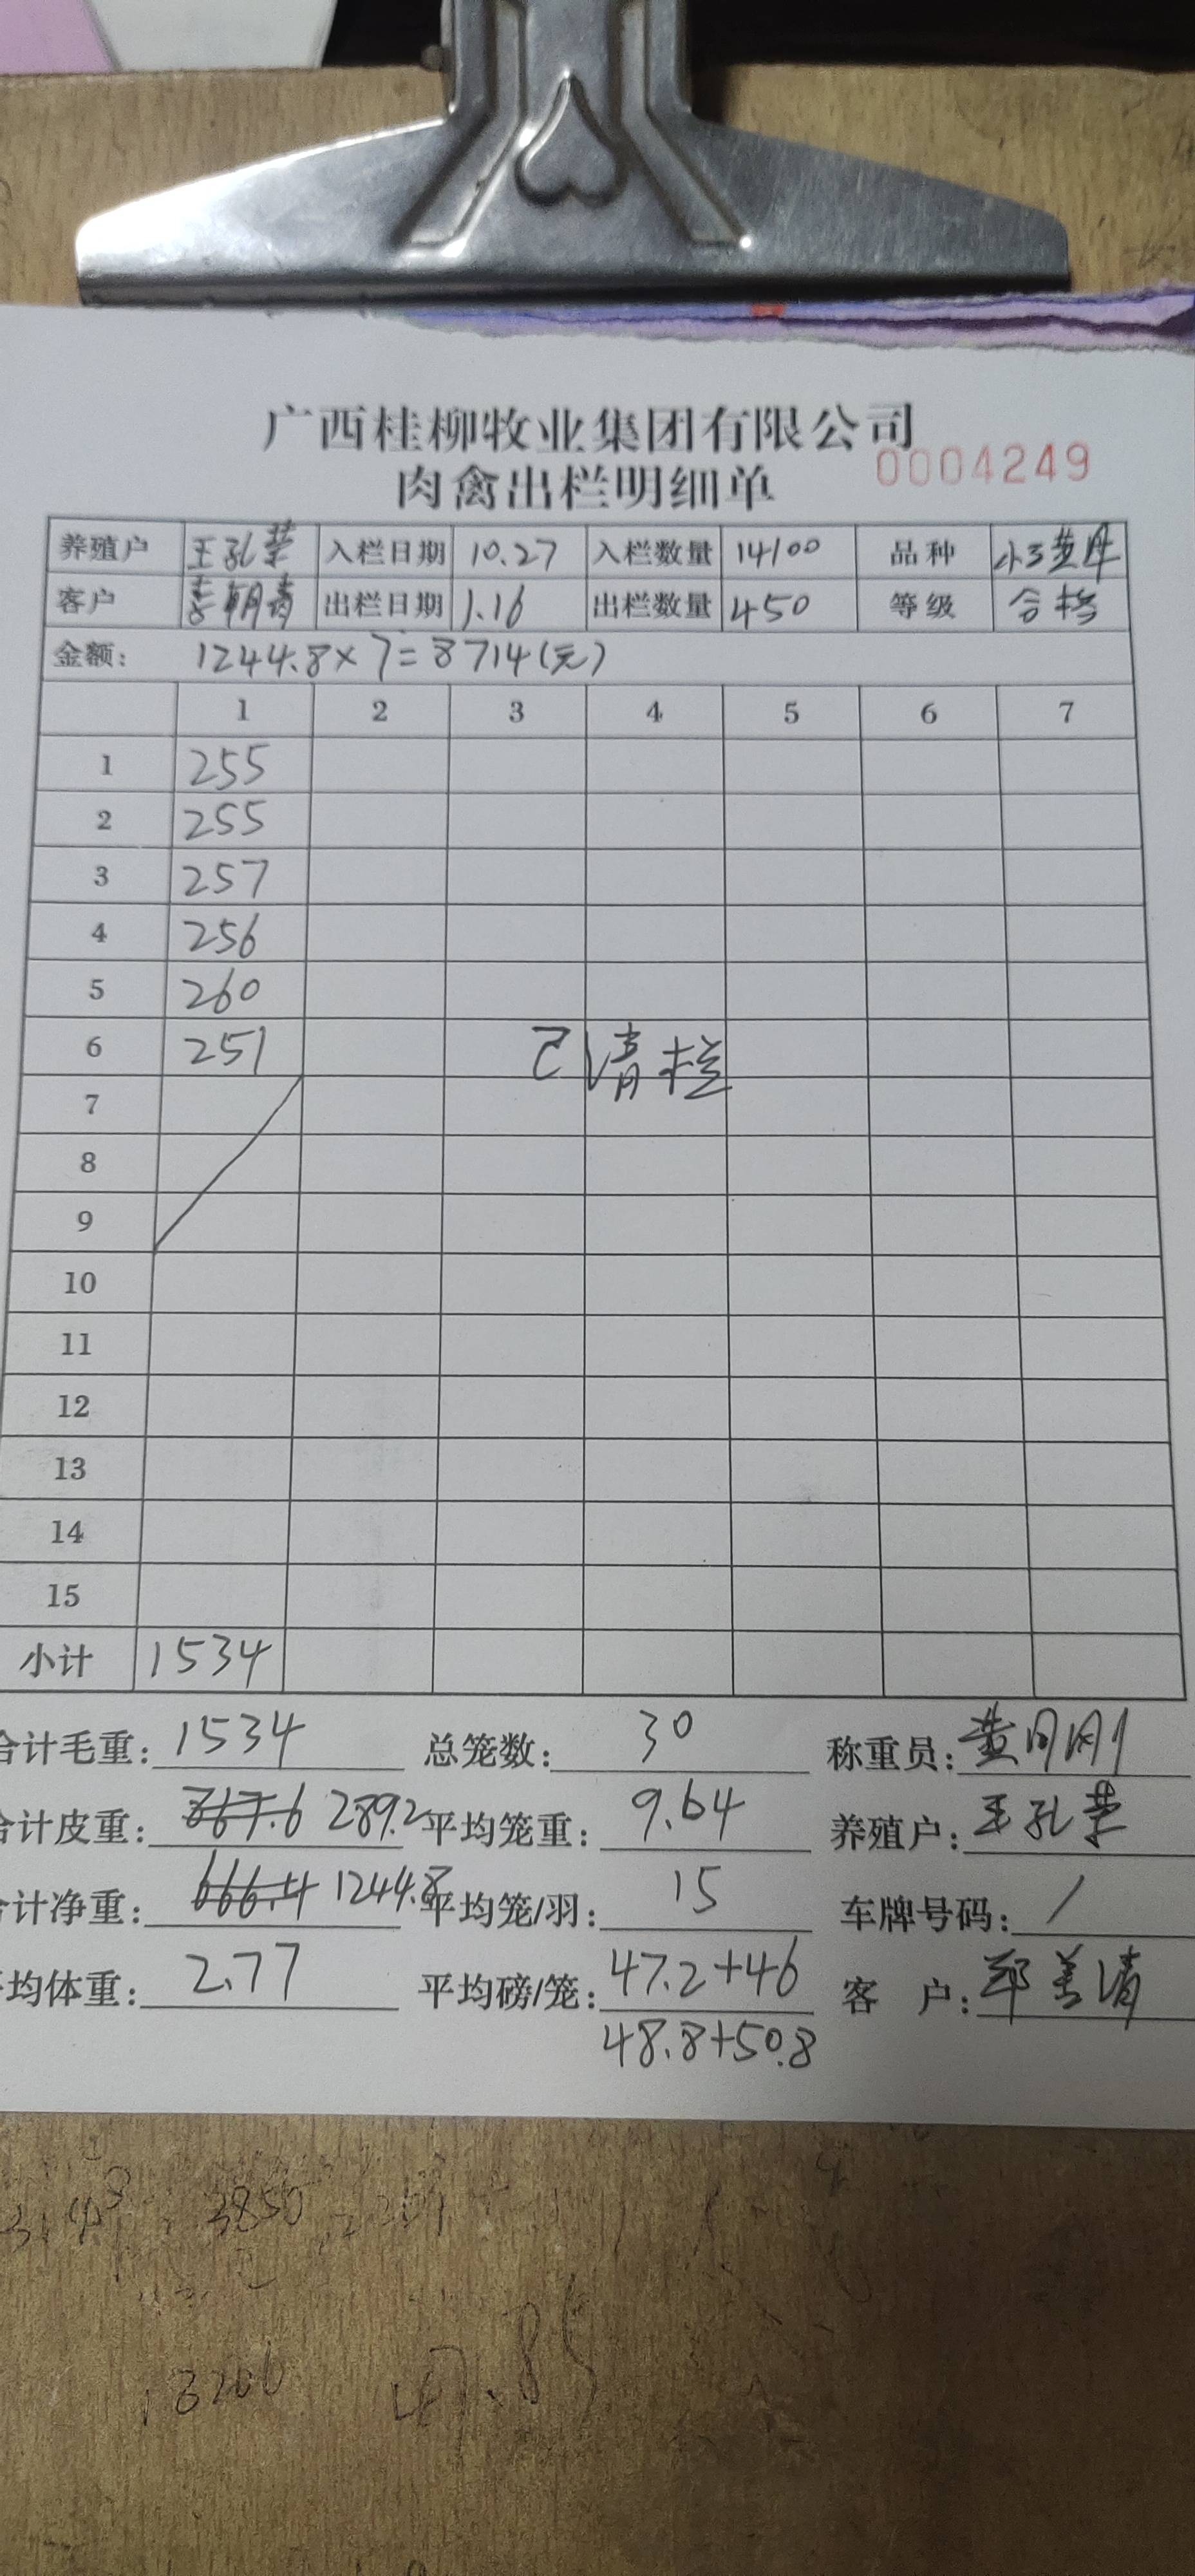 广西桂柳牧业集团有限公司
肉禽出栏明细单 0004249
养殖户 王孔荣 入栏日期 10.27 入栏数量 14100 品种
客户 出栏日期 1.16 出栏数量 450 等级 合格
金额: 1244.8×7=8714(元)
1 2 3 4 5 6 7
1 255
2 255
3 257
4 256
5 260
6 251 已清栏
7
8
9
10
11
12
13
14
15
小计 1534
合计毛重: 1534 总笼数: 30 称重员:
合计皮重: 289.2 平均笼重: 9.64 养殖户: 王孔荣
计净重: 666.4 1244.8 平均笼/羽: 15 车牌号码: /
均体重: 2.77 平均磅/笼: 47.2+46 客 户:
48.8+50.8
3850